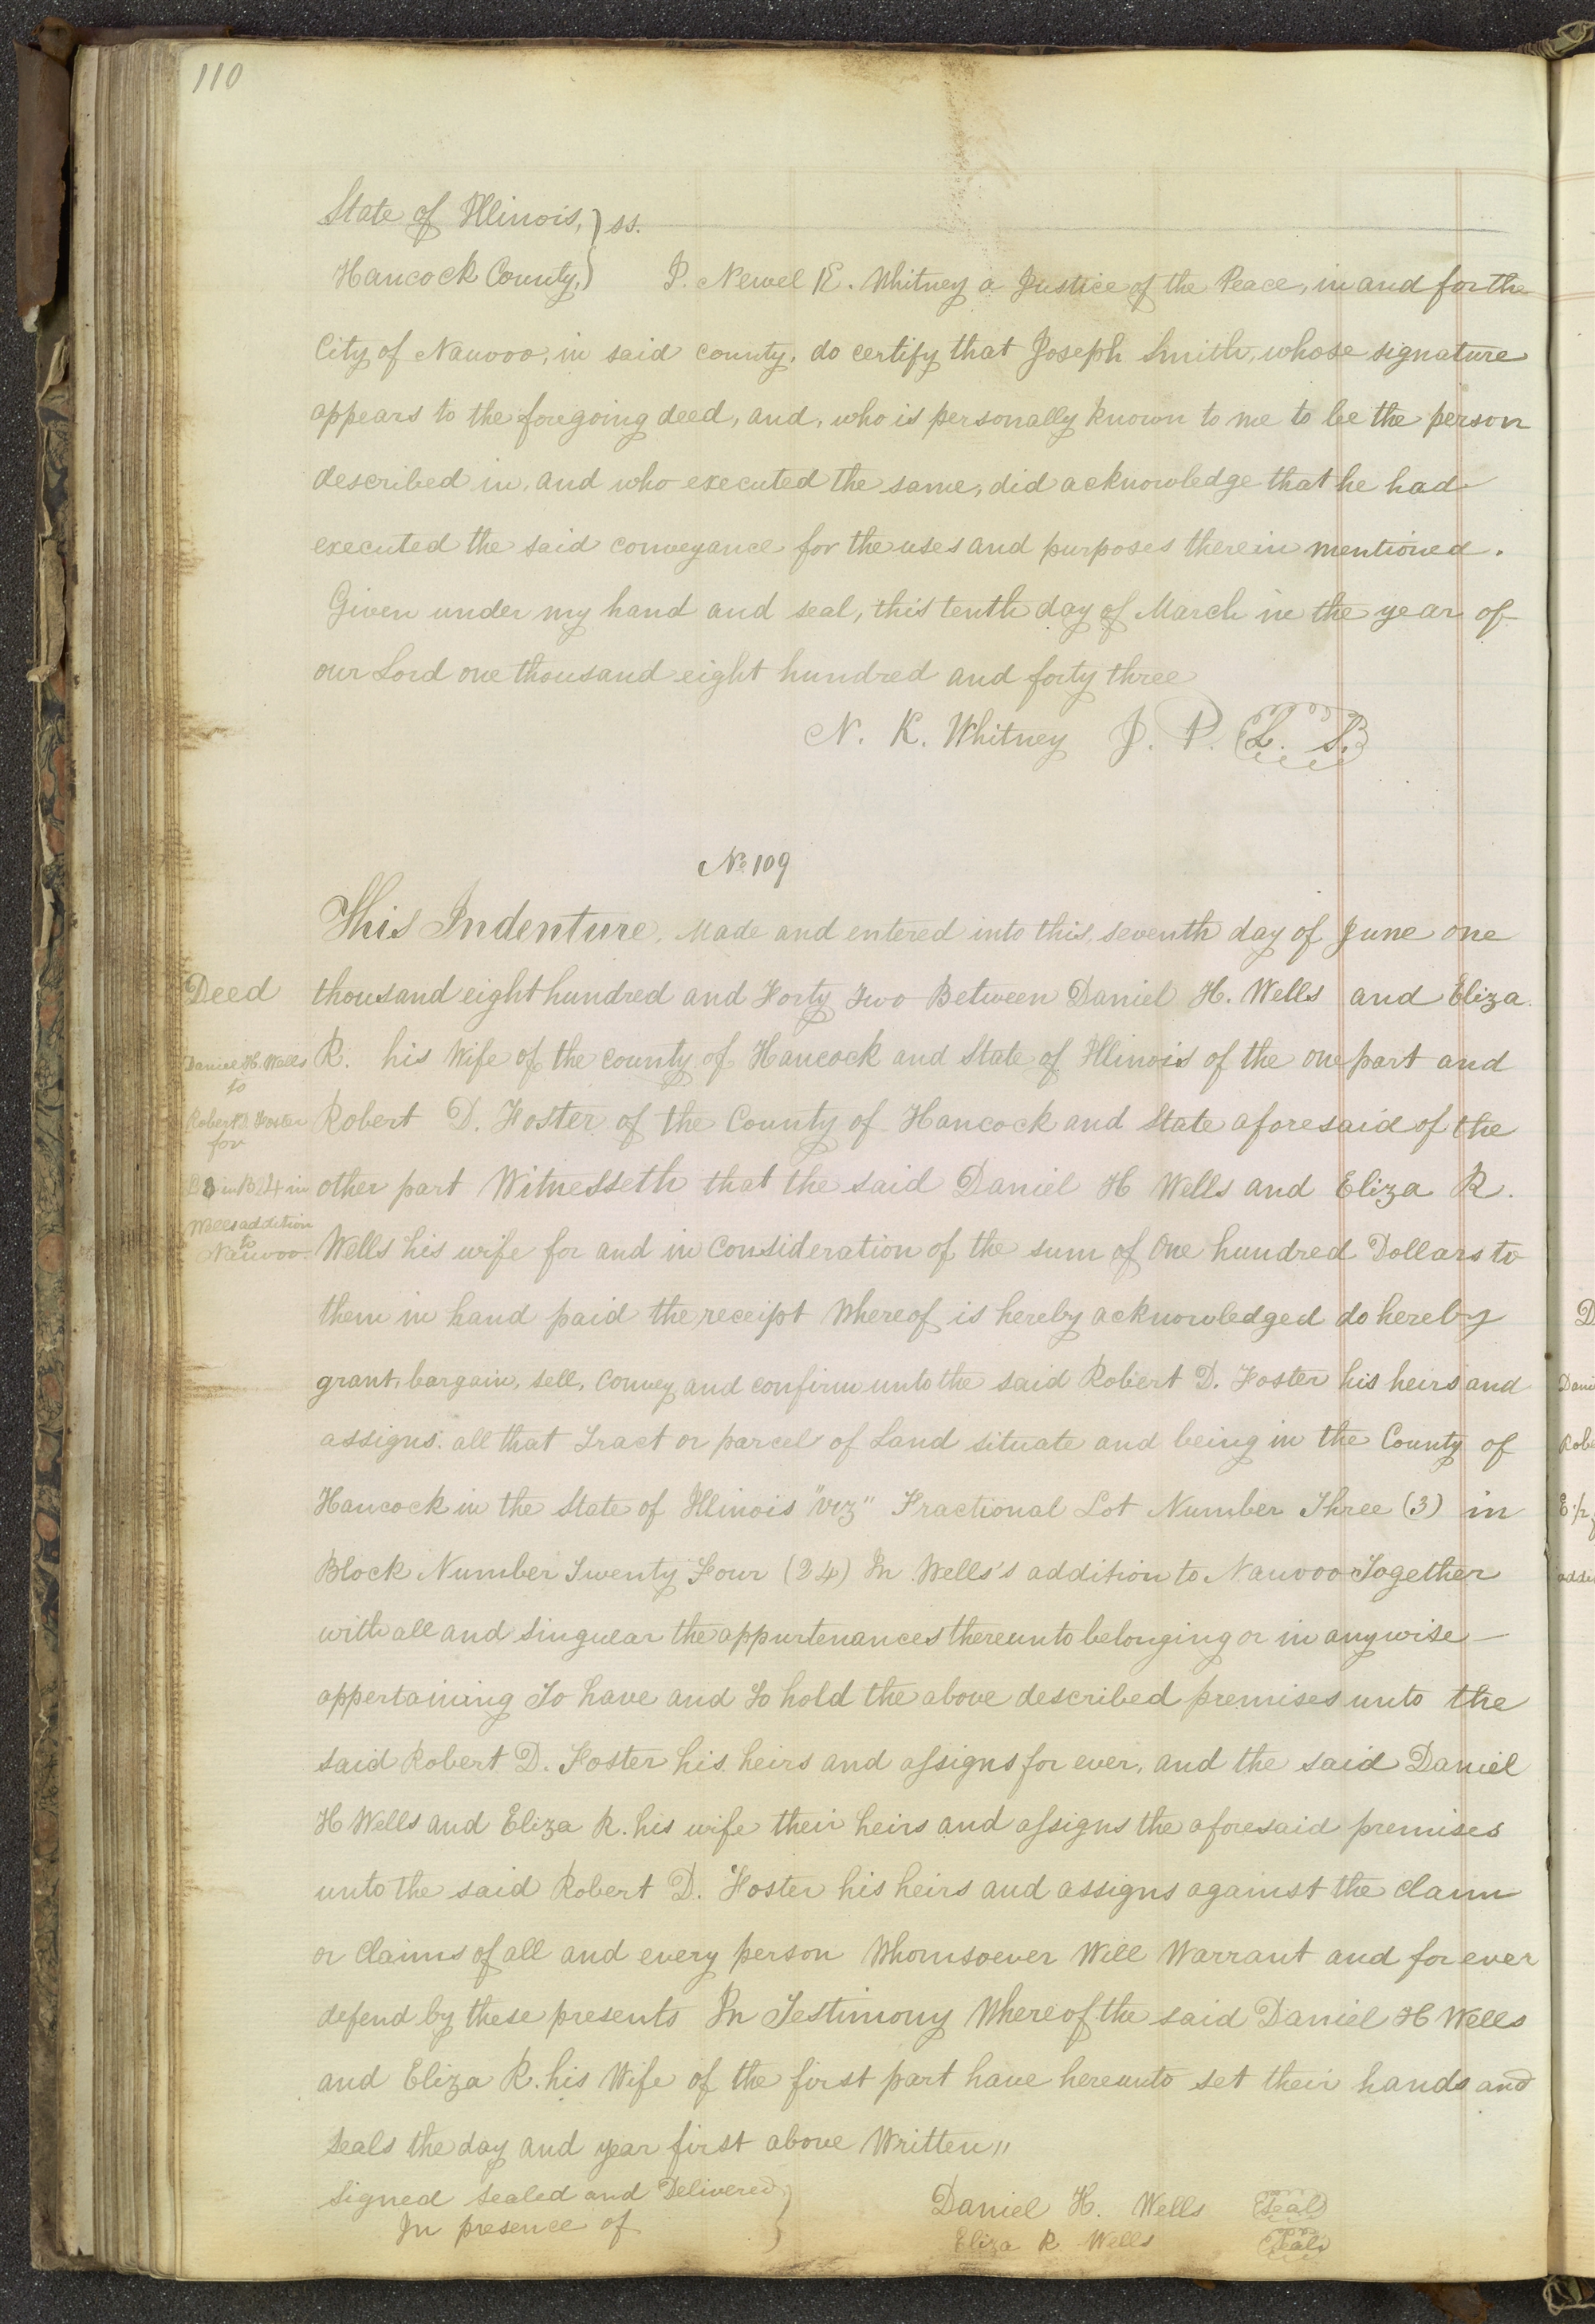 110
State of Illinois, } ss.
Hancock County, } I. Newel K. Whitney a Justice of the Peace, in and for the
City of Nauvoo, in said county, do certify that Joseph Smith, whose signature
appears to the foregoing deed, and, who is personally known to me to be the person
described in, and who executed the same, did acknowledge that he had
executed the said conveyance for the uses and purposes therein mentioned.
Given under my hand and seal, this tenth day of March in the year of
our Lord one thousand eight hundred and forty three
N. K. Whitney J. P. L. S.
No 109
This Indenture, Made and entered into this, seventh day of June one
Deed
thousand eight hundred and Forty Two Between Daniel H. Wells and Eliza.
Daniel H. Wells
to
R. his Wife of the county of Hancock and State of Illinois of the one part and
Robert D Foster
for
Robert D. Foster of the County of Hancock and State aforesaid of the
in B 24 in
other part Witnesseth that the said Daniel H Wells and Eliza R.
Wells addition
to
Nauvoo.
Wells his wife for and in Consideration of the sum of One hundred Dollars to
them in hand paid the receipt Whereof is hereby acknowledged do hereby
grant, bargain, sell, Convey and confirm unto the said Robert D. Foster his heirs and
assigns. all that Tract or parcel of Land situate and being in the County of
Hancock in the State of Illinois "viz" Fractional Lot Number Three (3) in
Block Number Twenty Four (24) In Wells's addition to Nauvoo Together
with all and Singular the appurtenances thereunto belonging or in anywise —
appertaining To have and to hold the above described premises unto the
said Robert D. Foster his heirs and assigns for ever, and the said Daniel
H Wells and Eliza R. his wife their heirs and assigns the aforesaid premises
unto the said Robert D. Foster his heirs and assigns against the claim
or Claims of all and every person Whomsoever Will Warrant and for ever
defend by these presents In Testimony Whereof the said Daniel H Wells
and Eliza R. his Wife of the first part have hereunto set their hands and
Seals the day and year first above Written"
Signed Sealed and Delivered }
In presence of }
Daniel H. Wells Seal
Eliza R Wells Seal
D
Dani
Robe
E 1/2
addi